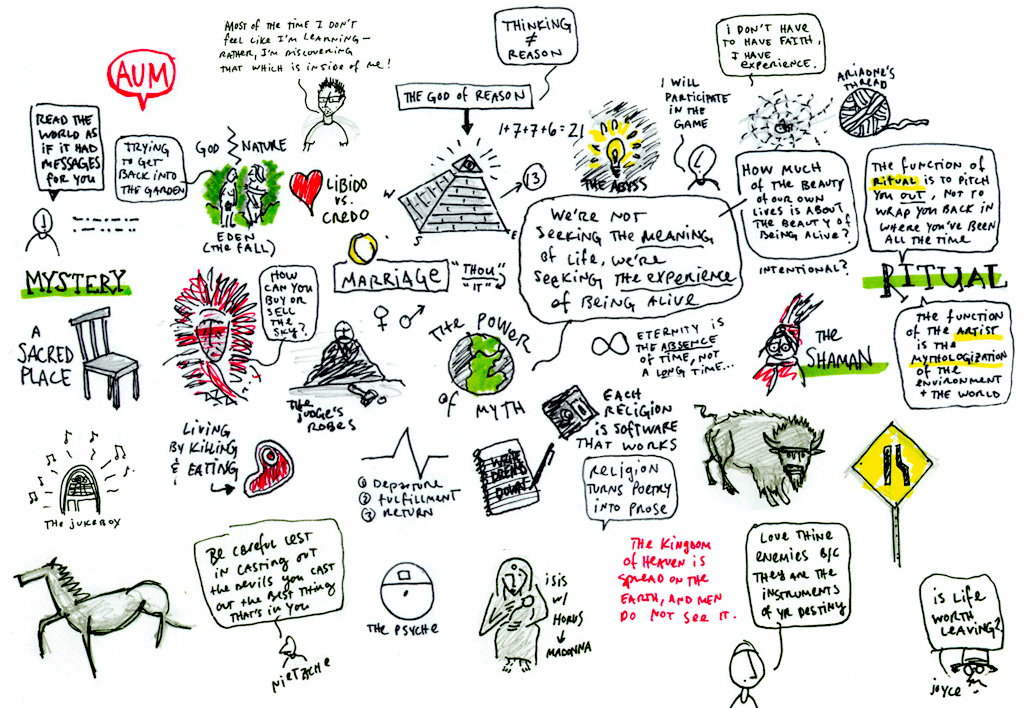 MOST OF THE TIME I DON'T
FEEL LIKE I'M LEARNING —
RATHER, I'M DISCOVERING
THAT WHICH IS INSIDE OF ME!
AUM
THINKING
≠
REASON
I DON'T HAVE
TO HAVE FAITH,
I HAVE
EXPERIENCE.
ARIADNE'S
THREAD
READ THE
WORLD AS
IF IT HAD
MESSAGES
FOR YOU
TRYING
TO GET
BACK INTO
THE GARDEN
GOD
NATURE
EDEN
(THE FALL)
LIBIDO
VS.
CREDO
THE GOD OF REASON
1+7+7+6=21
13
W
S
E
THE ABYSS
I WILL
PARTICIPATE
IN THE
GAME
HOW MUCH
OF THE BEAUTY
OF OUR OWN
LIVES IS ABOUT
THE BEAUTY OF
BEING ALIVE?
INTENTIONAL?
THE FUNCTION OF
RITUAL IS TO PITCH
YOU OUT, NOT TO
WRAP YOU BACK IN
WHERE YOU'VE BEEN
ALL THE TIME
RITUAL
THE FUNCTION
OF THE ARTIST
IS THE
MYTHOLOGIZATION
OF THE
ENVIRONMENT
+ THE WORLD
WE'RE NOT
SEEKING THE MEANING
OF LIFE, WE'RE
SEEKING THE EXPERIENCE
OF BEING ALIVE
MYSTERY
A
SACRED
PLACE
HOW
CAN YOU
BUY OR
SELL
THE
SKY?
MARRIAGE
"THOU"
"IT"
THE JUDGE'S
ROBES
THE POWER
OF MYTH
ETERNITY IS
THE ABSENCE
OF TIME, NOT
A LONG TIME...
THE
SHAMAN
LIVING
BY KILLING
& EATING
THE JUKEBOX
① DEPARTURE
② FULFILLMENT
③ RETURN
WRITE
DREAMS
DOWN
EACH
RELIGION
IS SOFTWARE
THAT WORKS
RELIGION
TURNS POETRY
INTO PROSE
BE CAREFUL LEST
IN CASTING OUT
THE DEVILS YOU CAST
OUT THE BEST THING
THAT'S IN YOU
NIETZCHE
THE PSYCHE
ISIS
W/
HORUS
↓
MADONNA
THE KINGDOM
OF HEAVEN IS
SPREAD ON THE
EARTH, AND MEN
DO NOT SEE IT.
LOVE THINE
ENEMIES B/C
THEY ARE THE
INSTRUMENTS
OF YR DESTINY
IS LIFE
WORTH
LEAVING?
JOYCE